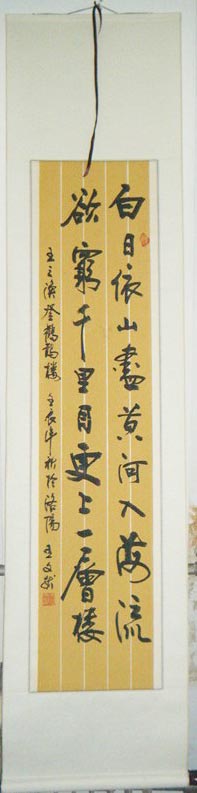 白日依山盡黄河入海流
欲窮千里目更上一層楼
王之渙登鸛鵲楼 壬辰年秋於洛陽 王文